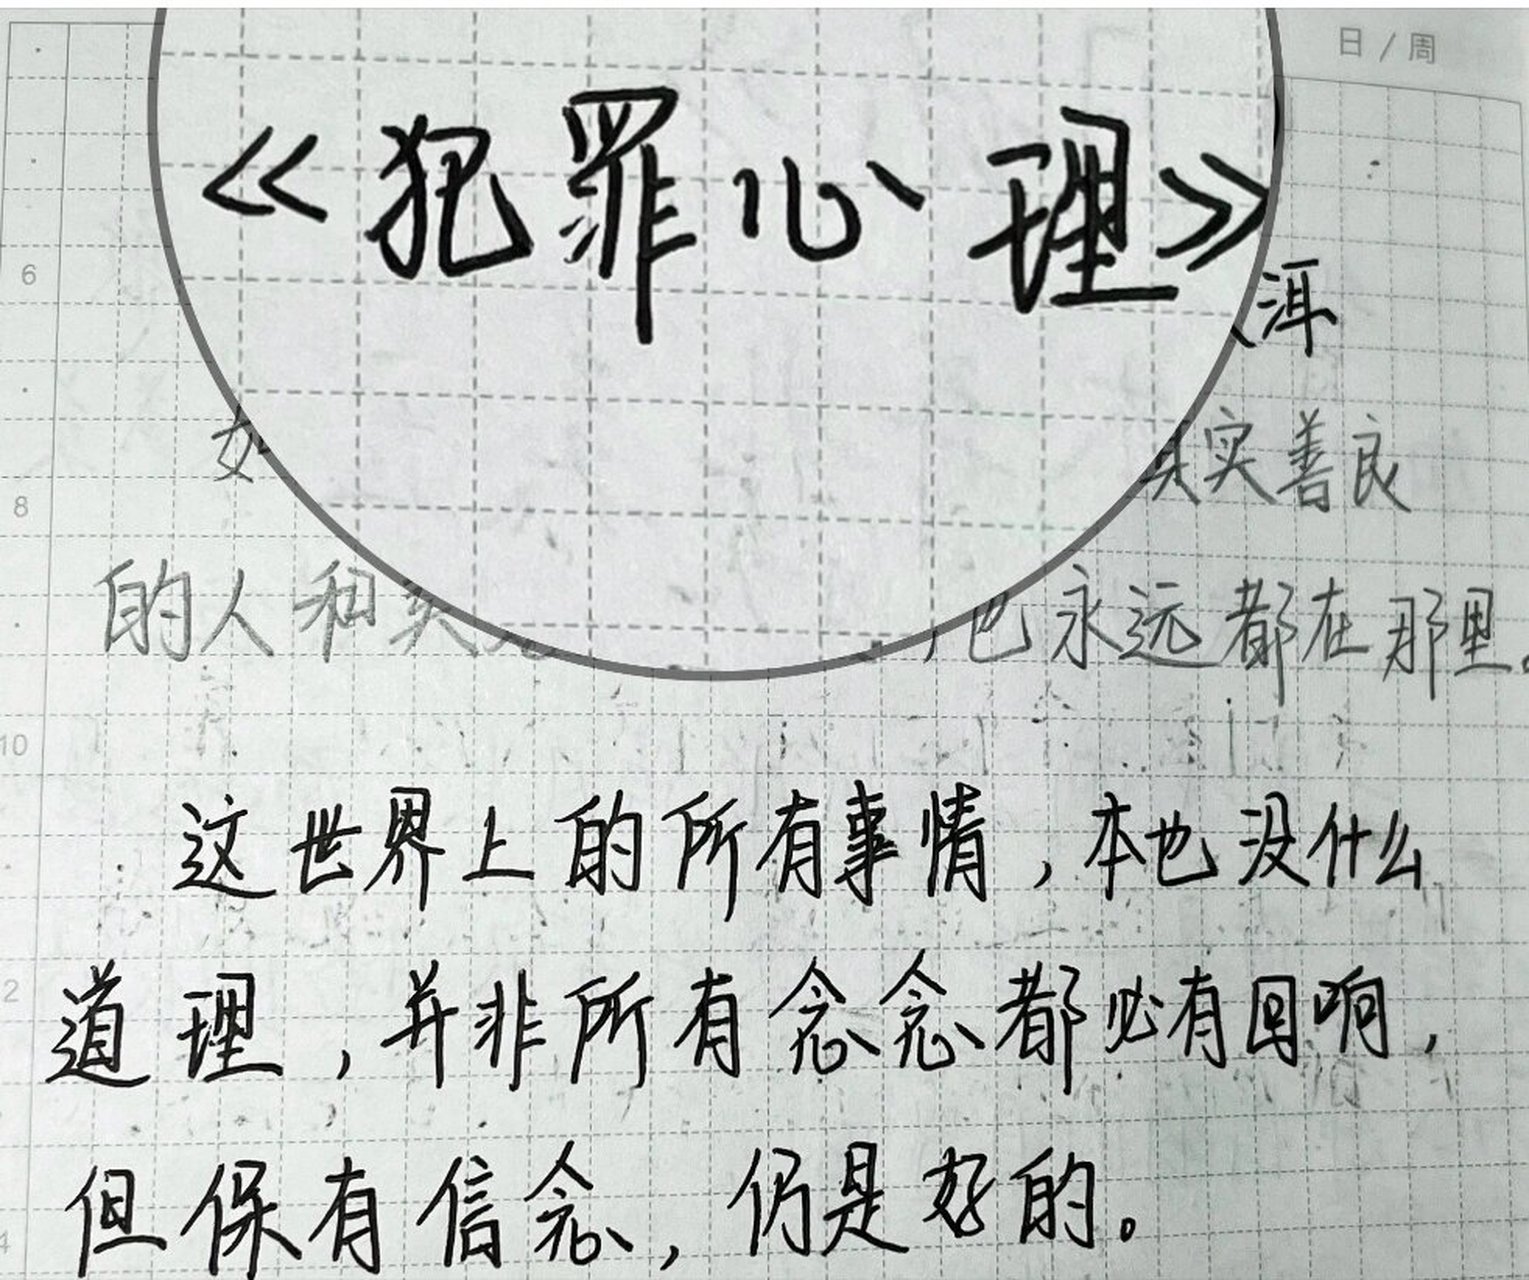 日/周
《犯罪心理》
6
洱
如 真实善良
8
的人和 ，也永远都在那里。
10
这世界上的所有事情，本也没什么
道理，并非所有念念都必有回响，
2
但保有信念，仍是好的。
4